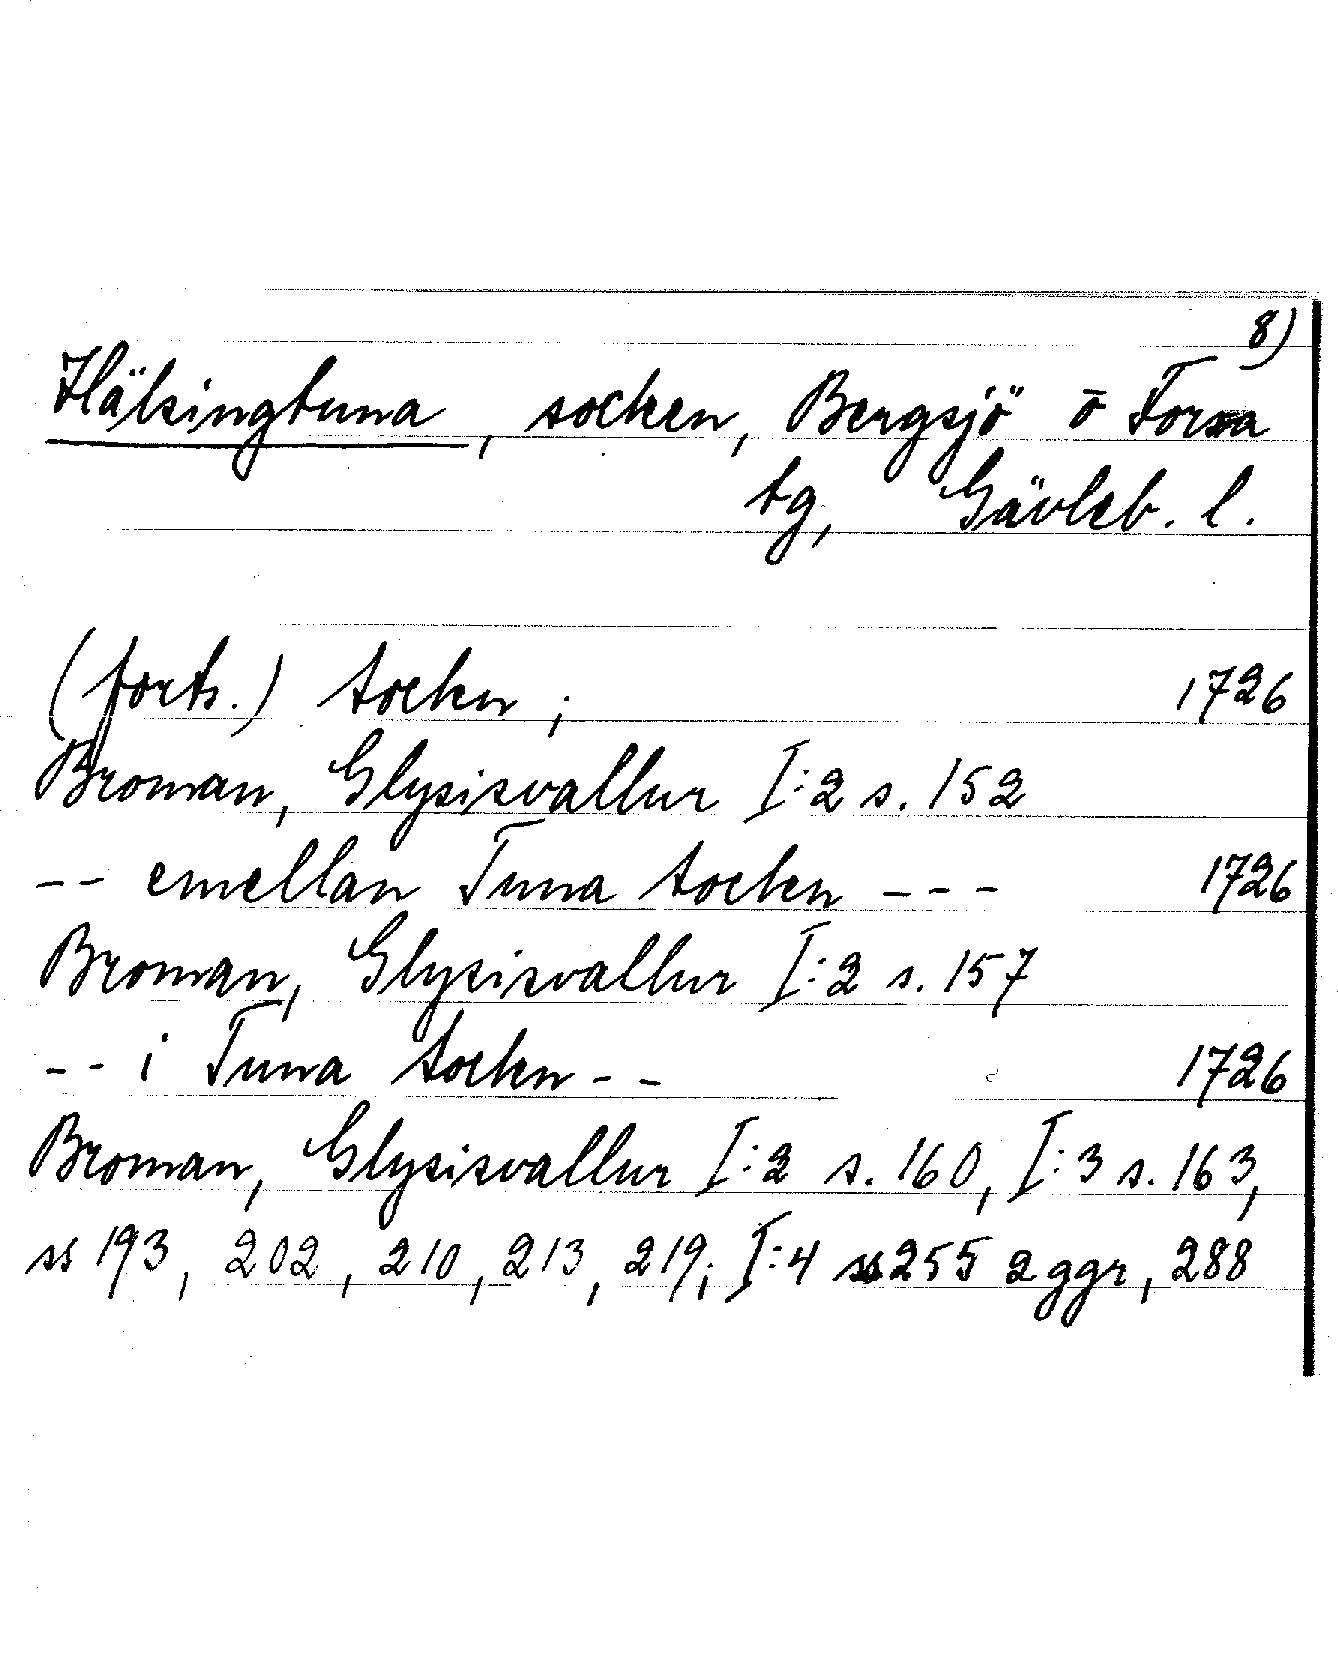 8)
Hälsingtuna, socken, Bergsjö o Forsa
tg, Gävleb. l.
(forts.) Socken; 1726
Broman, Glysisvallur I:2 s. 152
-- emellan Tuna Socken --- 1726
Broman, Glysisvallur I:2 s. 157
-- i Tuna Socken -- 1726
Broman, Glysisvallur I:2 s. 160, I:3 s. 163,
ss 193, 202, 210, 213, 219; I:4 ss 255 2 ggr, 288